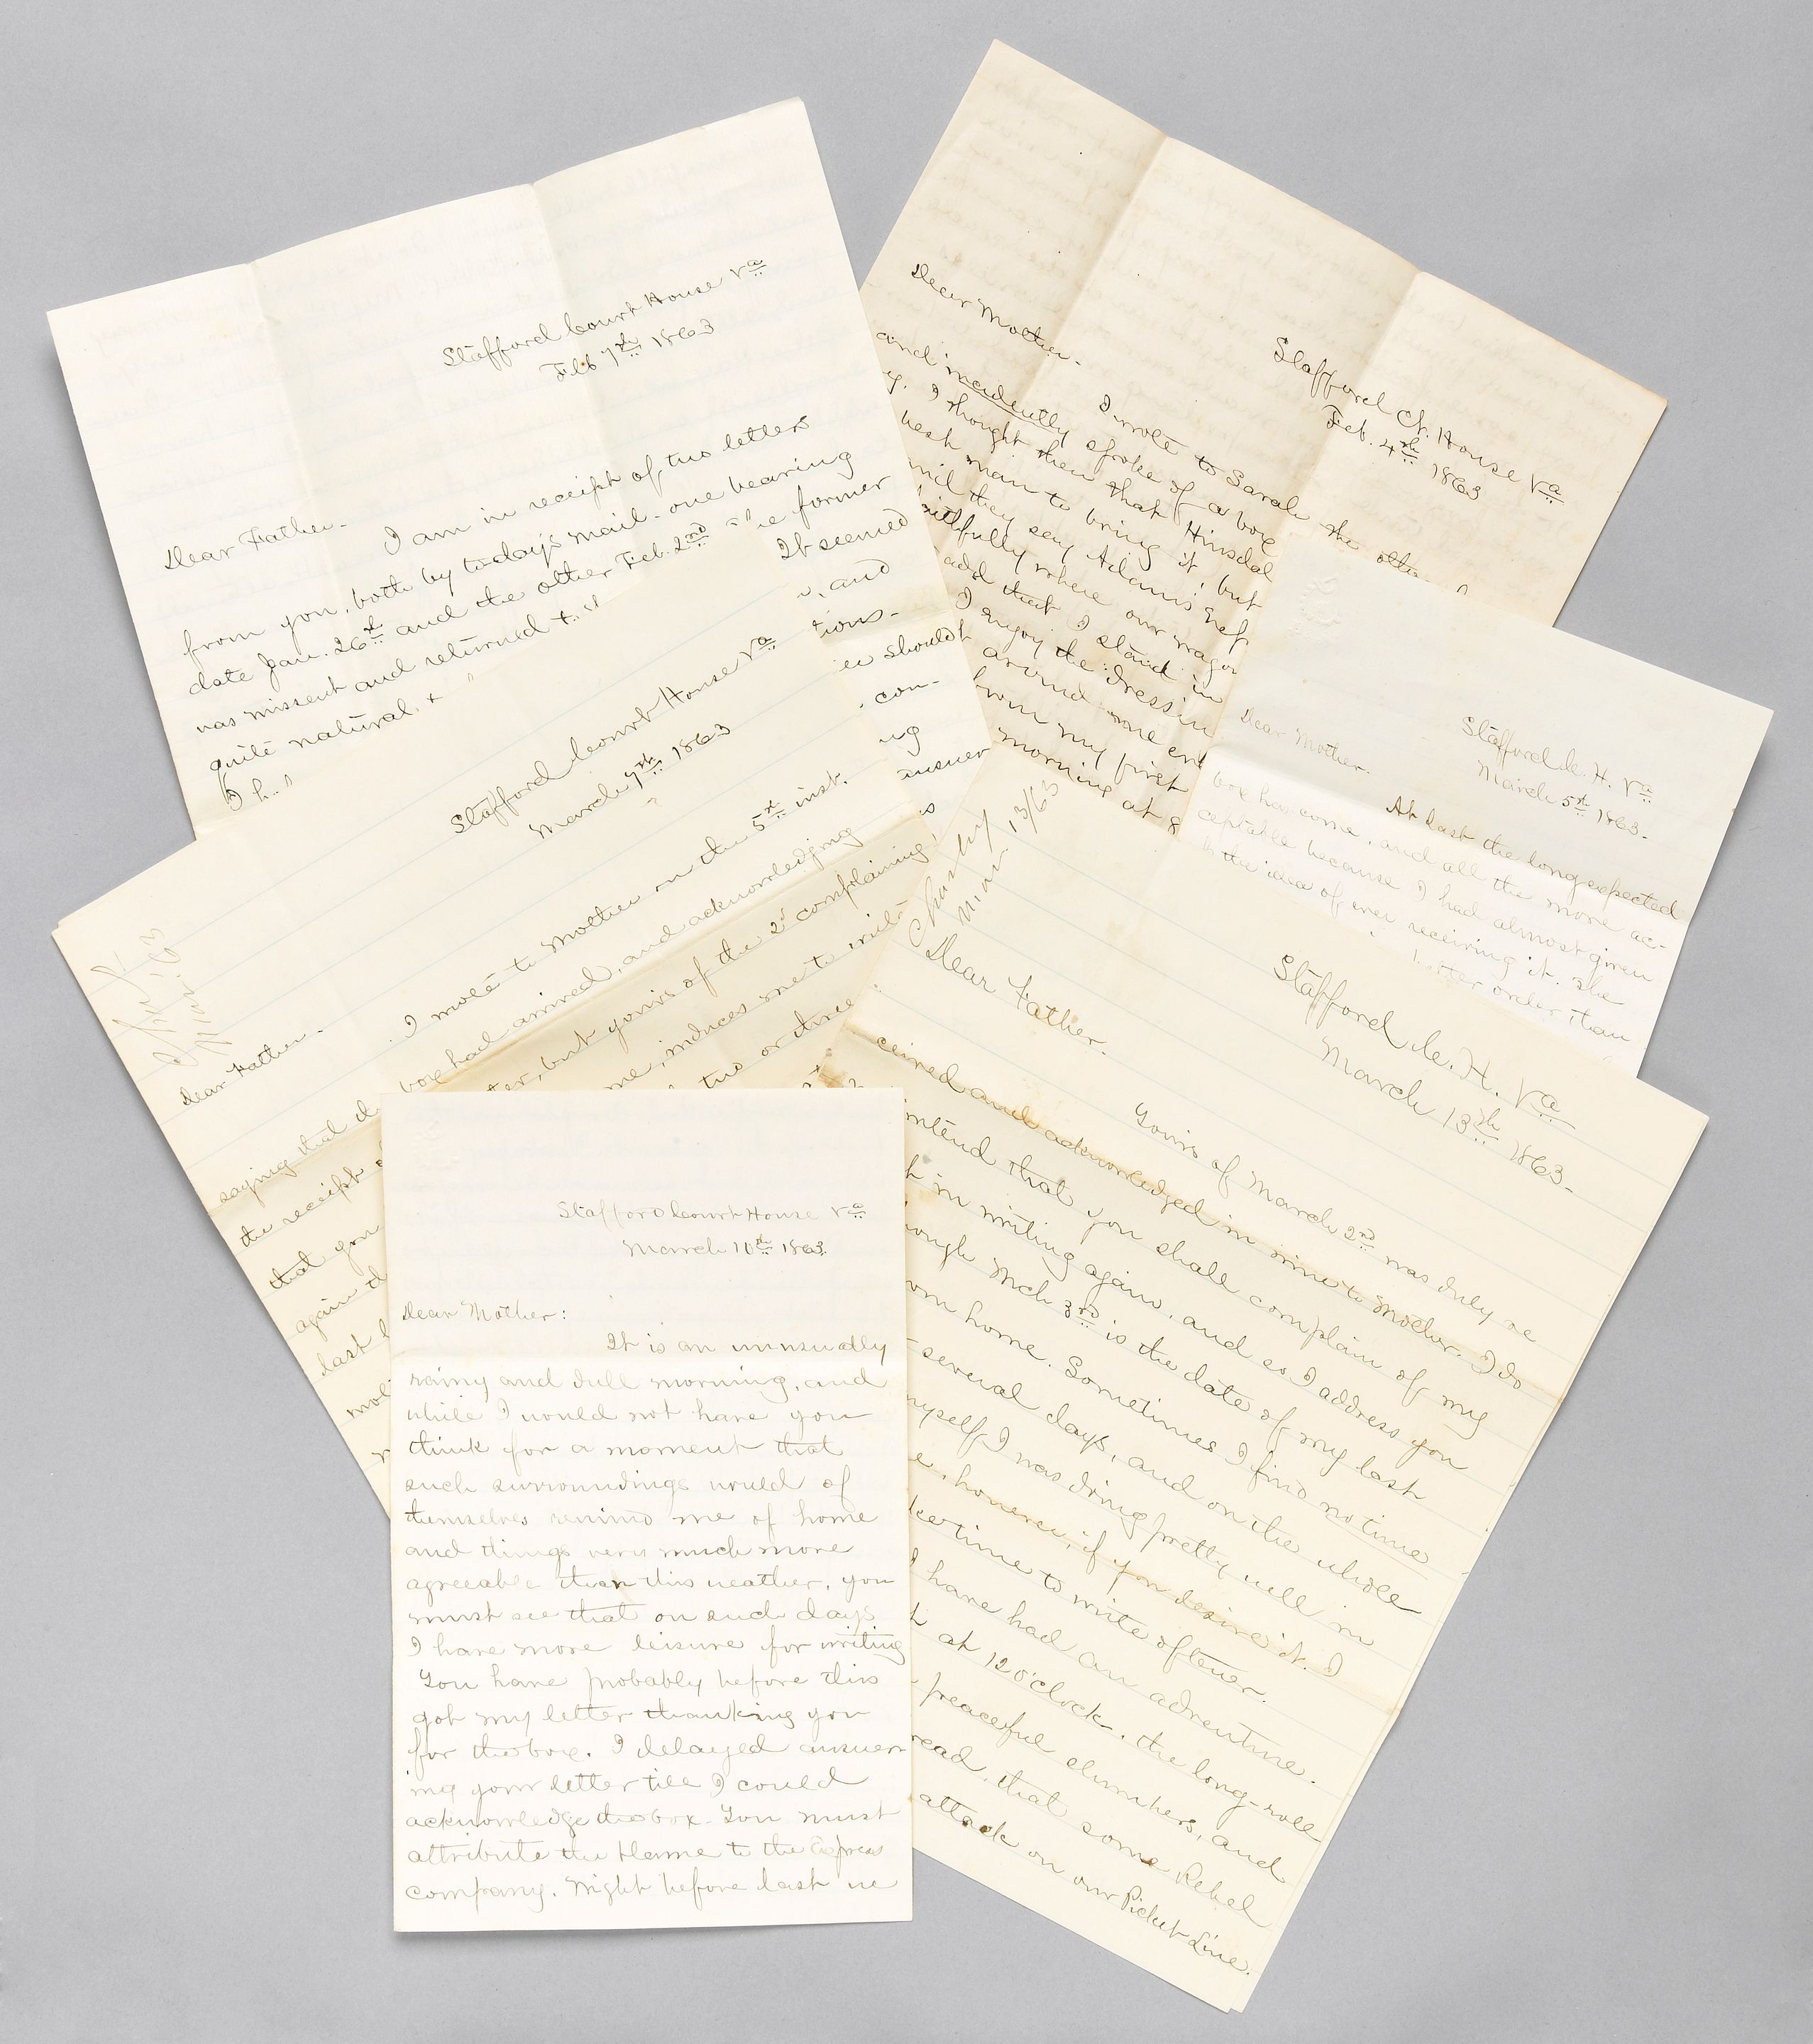 Stafford Court House Va
Feb 7th 1863
Dear Father-
I am in receipt of two letters
from you, both by today's mail - one bearing
date Jan. 26th and the other Feb. 2nd The former
was missent and returned to
It seemed
quite natural,
and
tions-
should
con-
ng
answer
Stafford Ct. House Va
Feb. 4th 1863
Dear Mother-
I wrote to Sarah the other
and incidently spoke of a box
y. I thought then that Hinsdal
best man to bring it, but
until they say Adams' Exp
faithfully where our wagon
add that I stand in
I enjoy the dressin
around me en
from my first
morning at 8
Stafford C. H. Va
March 5th 1863-
Dear Mother.
At last the long expected
box has come, and all the more ac-
ceptable because I had almost given
up the idea of ever receiving it. She
better order than
Stafford Court House Va
March 7th 1863
Mar. 63
Dear Father-
I wrote to Mother on the 5th inst.
saying that the box had arrived, and acknowledging
the receipt ter, but yours of the 2d complaining
that you me, induces me to write
again th two or three
last
Charley
Mar. 13/63
Stafford C. H. Va
March 13th 1863-
Dear Father.
Yours of March 2nd was duly re
ceived and acknowledged in mine to Mother. I do
intend that you shall complain of my
in writing again, and so I address you
though Mch 3rd is the date of my last
from home. Sometimes I find no time
several days, and on the whole
myself I was doing pretty well in
however, if you desire it. I
time to write oftener.
I have had an adventure.
at 12 o'clock, the long-roll
peaceful slumbers, and
read, that some Rebel
attack on our Picket Line.
Stafford Court House Va
March 10th 1863.
Dear Mother:
It is an unusually
rainy and dull morning, and
while I would not have you
think for a moment that
such surroundings would of
themselves remind me of home
and things very much more
agreeable than this weather, you
must see that on such days
I have more leisure for writing
You have probably before this
got my letter thanking you
for the box. I delayed answer-
ing your letter till I could
acknowledge the box. You must
attribute the blame to the Express
company. Night before last we